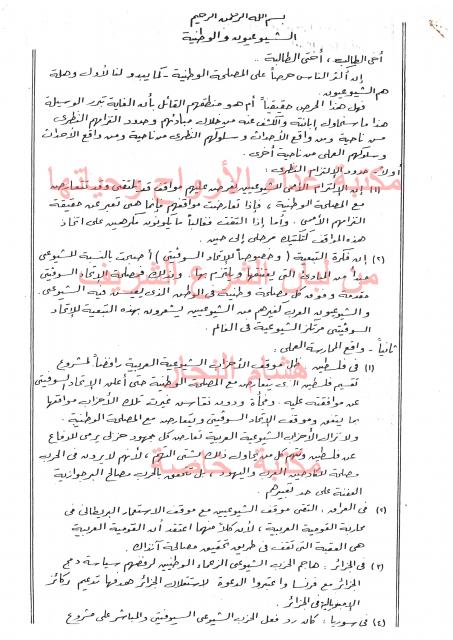 بسم الله الرحمن الرحيم
الشيوعيون والوطنية
أخي الطالب ، أختي الطالبة ..
إن أكثر الناس حرصاً على المصلحة الوطنية - كما يبدو لنا لأول وهلة
هم الشيوعيون .
فهل هذا الحرص حقيقياً أم هو منطقهم القائل بأن الغاية تبرر الوسيلة
هذا ما سنحاول إبانته والكشف عنه من خلال مبادئهم وحدود التزامهم النظري
من ناحية ومن واقع الأحداث وسلوكهم النظري من ناحية ومن واقع الأحداث
وسلوكهم العملي من ناحية أخرى .
أولاً - حدود الإلتزام النظري :
(١) إن الإلتزام الأممي للشيوعيين يفرض عليهم مواقف قد تلتقي وقد تتعارض
مع المصلحة الوطنية ، فإذا تعارضت مواقفهم فإنما هي تعبر عن حقيقة
التزامهم الأممي . وأما إذا التقت فغالباً ما يكونون مكرهين على اتخاذ
هذه المواقف كتكتيك مرحلي إلى حين .
(٢) إن فكرة التبعية ( وخصوصاً للإتحاد السوفيتي ) أصبحت بالنسبة للشيوعي
مبدأ من المبادئ التي يعتنقها ويلتزم بها . ولذلك فمصلحة الإتحاد السوفيتي
مقدمة وفوق كل مصلحة وطنية في الوطن الذي يعيش فيه الشيوعي .
والشيوعيون العرب كغيرهم من الشيوعيين يشعرون بهذه التبعية للإتحاد
السوفيتي مركز الشيوعية في العالم .
ثانياً - واقع الممارسة العملي :
(١) في فلسطين : ظل موقف الأحزاب الشيوعية العربية رافضاً لمشروع
تقسيم فلسطين الذي يتعارض مع المصلحة الوطنية حتى أعلن الإتحاد السوفيتي
عن موافقته عليه . وفجأة ودون تقاعس غيرت تلك الأحزاب مواقفها
بما يتفق وموقف الإتحاد السوفيتي ويتعارض مع المصلحة الوطنية .
ولا تزال الأحزاب الشيوعية العربية تعارض كل مجهود حربي يرمي للدفاع
عن فلسطين وتتهم كل من يحاول ذلك بشتى التهم ، لأنهم لا يرون في الحرب
مصلحة للكادحين العرب واليهود ، بل تتحقق بالحرب مصالح البرجوازية
العفنة على حد تعبيرهم .
(٢) في العراق : التقى موقف الشيوعيين مع موقف الاستعمار البريطاني في
محاربة القومية العربية ، لأن كلاً منهما اعتقد أن القومية العربية
هي العقبة التي تقف في طريق تحقيق مصالحه آنذاك .
(٣) في الجزائر : هاجم الحزب الشيوعي الزعماء الوطنيين لرفضهم سياسة دمج
الجزائر مع فرنسا واعتبروا الدعوة لاستقلال الجزائر هدفها تدعيم ركائز
الإمبريالية في الجزائر .
(٤) في سوريا : كان رد فعل الحزب الشيوعي السوفيتي والمباشر على مشروع
مكتبة غذاء الأرواح وحياتها
من نيل الشرع الشريف
هشام النجار
مكتبة خاصة